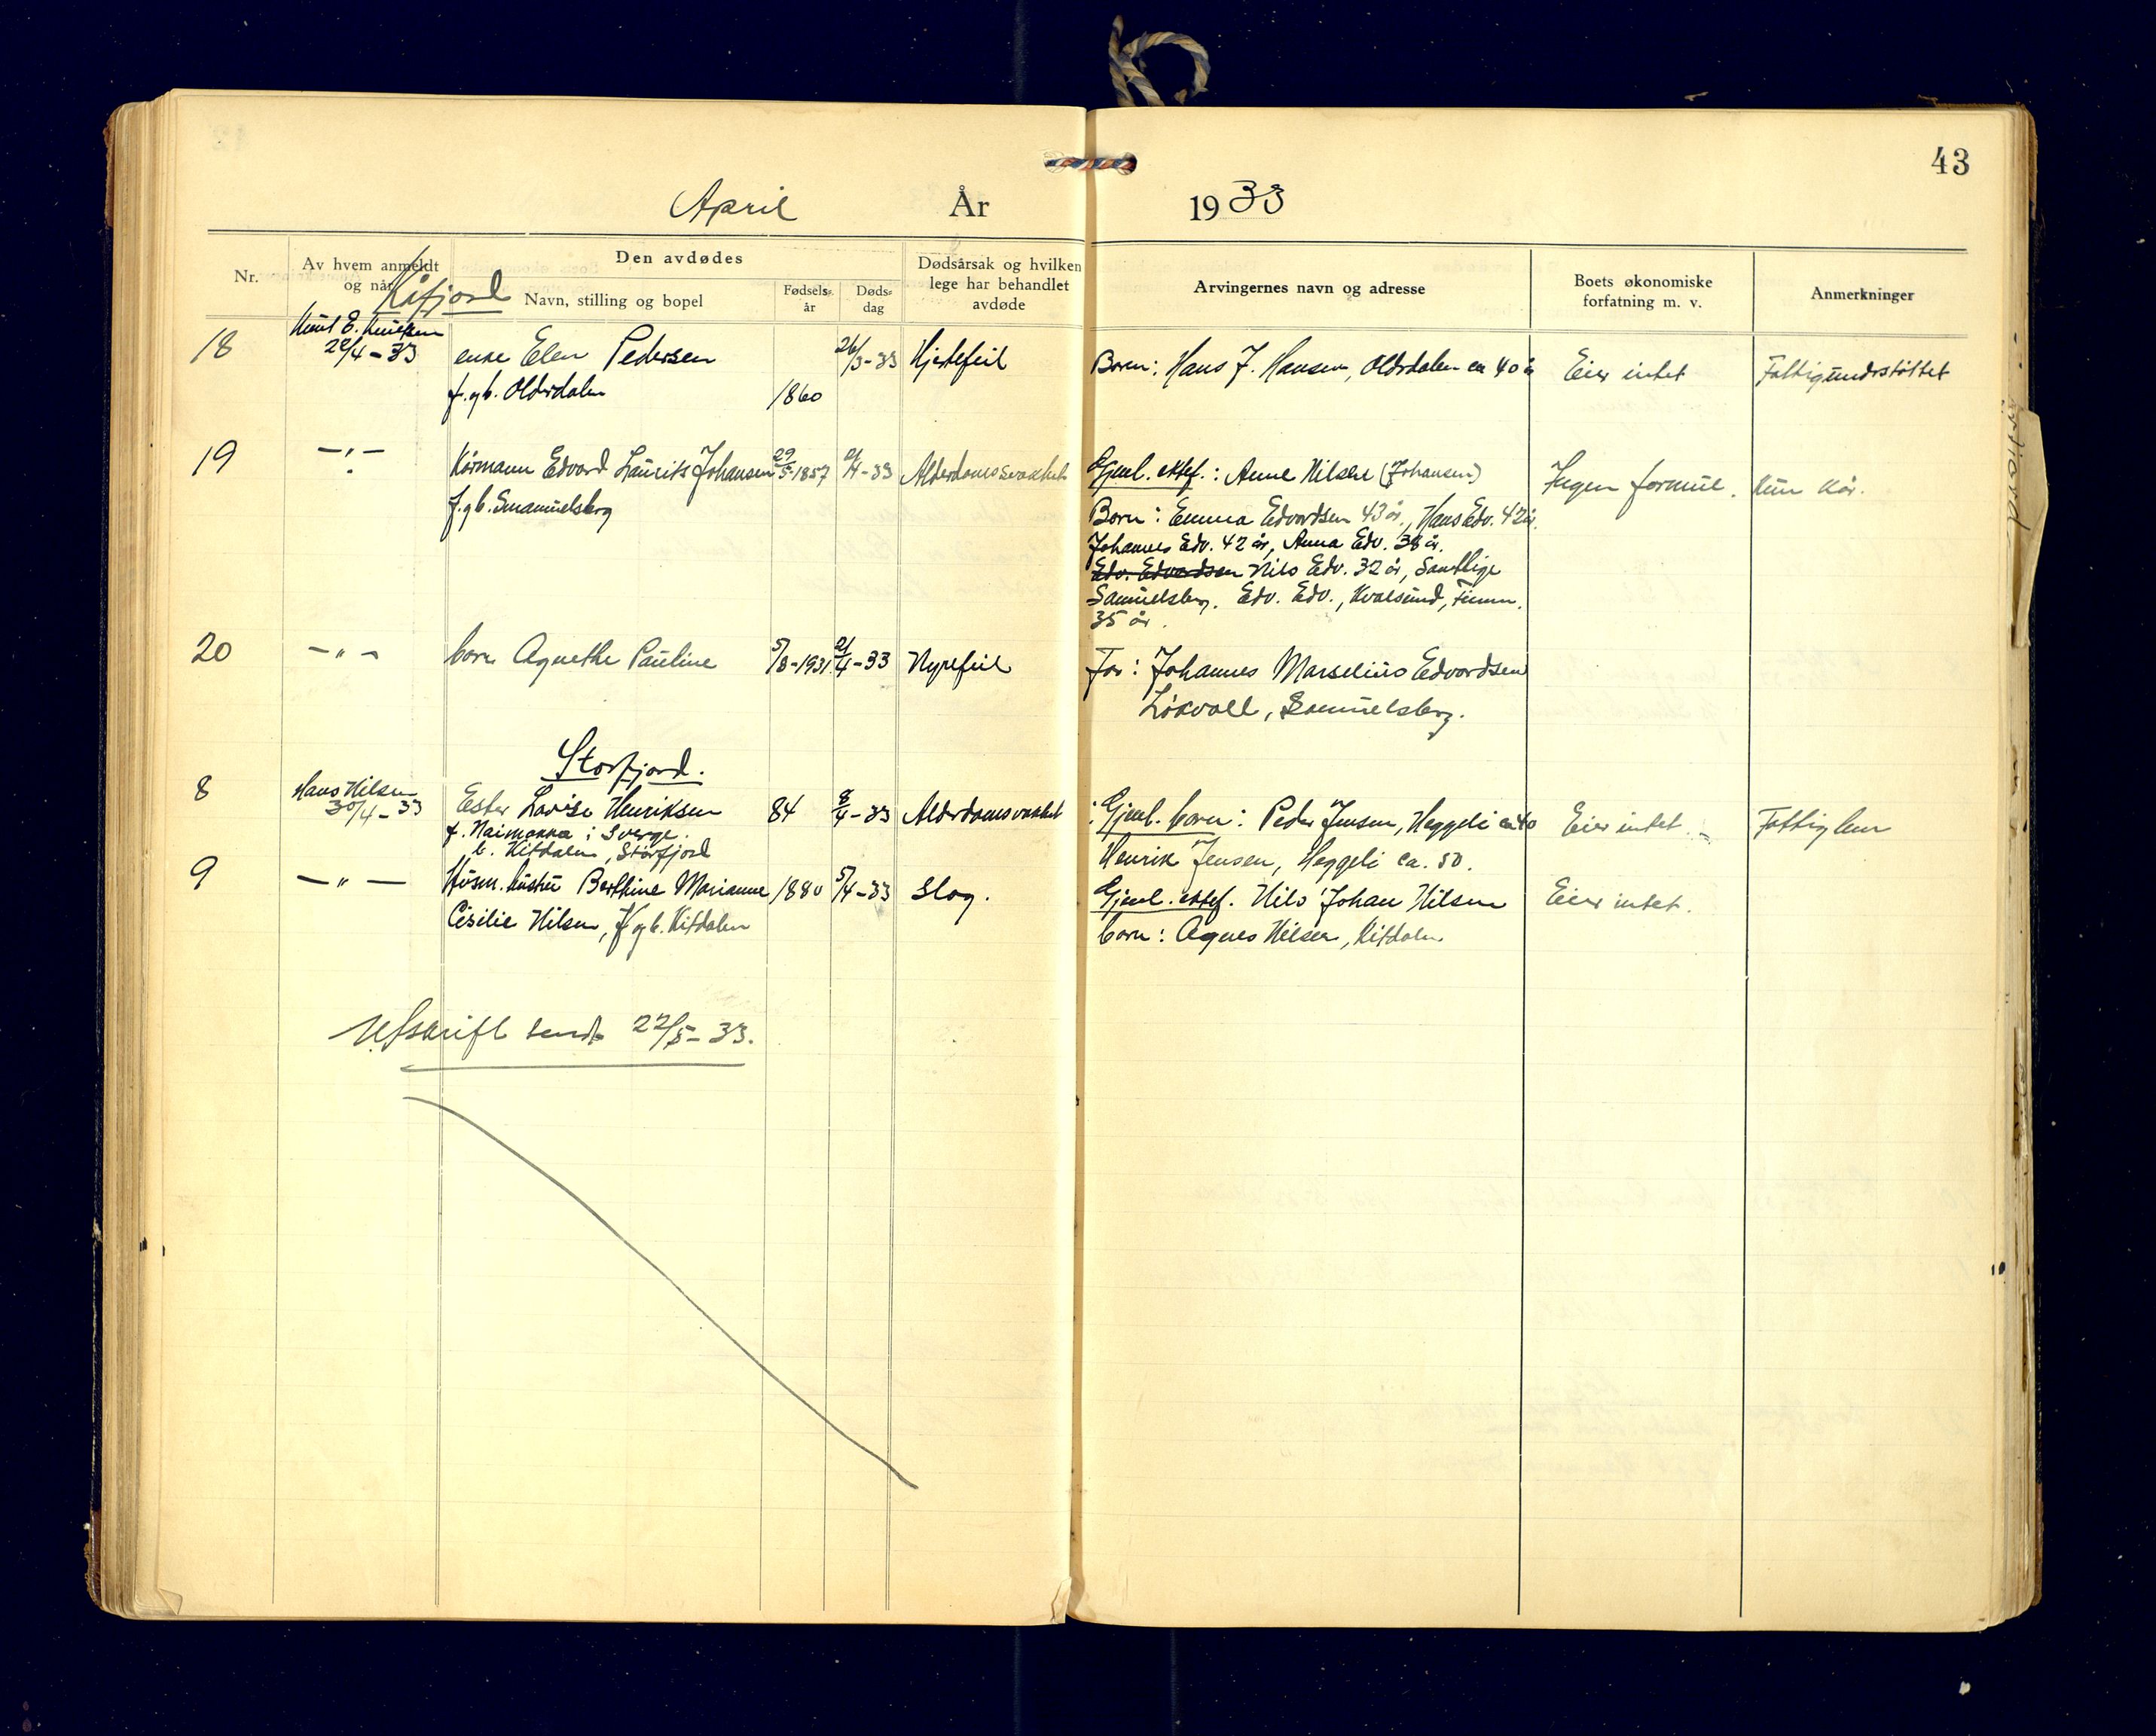 43
April År 1933
Nr.
Av hvem anmeldt
og når
Den avdødes
Navn, stilling og bopel
Fødsels-
år
Døds-
dag
Dødsårsak og hvilken
lege har behandlet
avdøde
Arvingernes navn og adresse
Boets økonomiske
forfatning m. v.
Anmerkninger
Kåfjord
18 Knut E. Knutsen
22/4-33
enke Elen Pedersen 26/3-33 Hjertefeil
f. og b. Olderdalen 1860
Børn: Hans J. Hansen, Olderdalen ca 40 å
Eier intet
Fattigunderstøttet
19 -"- Kårmann Edvard Laurits Johansen 29/5-1857 /4-33 Alderdomssvakhet
f. og b. Smamuelsberg
Gjenl. ektef.: Anne Nilsdr (Johansen)
Børn: Emma Edvardsen 43 år, Hans Edv. 42 år.
Johannes Edv. 42 år, Anna Edv. 38 år.
Edv. Edvardsen Nils Edv. 32 år, Samtlige
Samuelsberg. Edv. Edv., Kvalsund, Finnm.
35 år.
Ingen formue. kun kår.
20 -"- barn Agnethe Pauline 5/8-1931. 21/4-33 Nyrefeil
Far: Johannes Marselius Edvardsen
Løkvoll, Samuelsberg.
Storfjord.
8 Hans Nilsen
30/4-33
Ester Lovise Henriksen 84 8/4-33 Alderdomsvakhet
f. Naimakka i Sverge.
b. Kitdalen, Storfjord
Gjenl. børn: Peder Jensen, Heggeli ca 40
Henrik Jensen, Heggeli ca. 50.
Eier intet.
Fattiglem
9 -"- Husm. hustru Berthine Marianne 1880 5/4-33 Slag.
Cisilie Nilsen, f og b. Kitdalen
Gjenl. ektef. Nils Johan Nilsen
barn: Agnes Nilsen, Kitdalen
Eier intet.
Utskrift sendt 22/5-33.